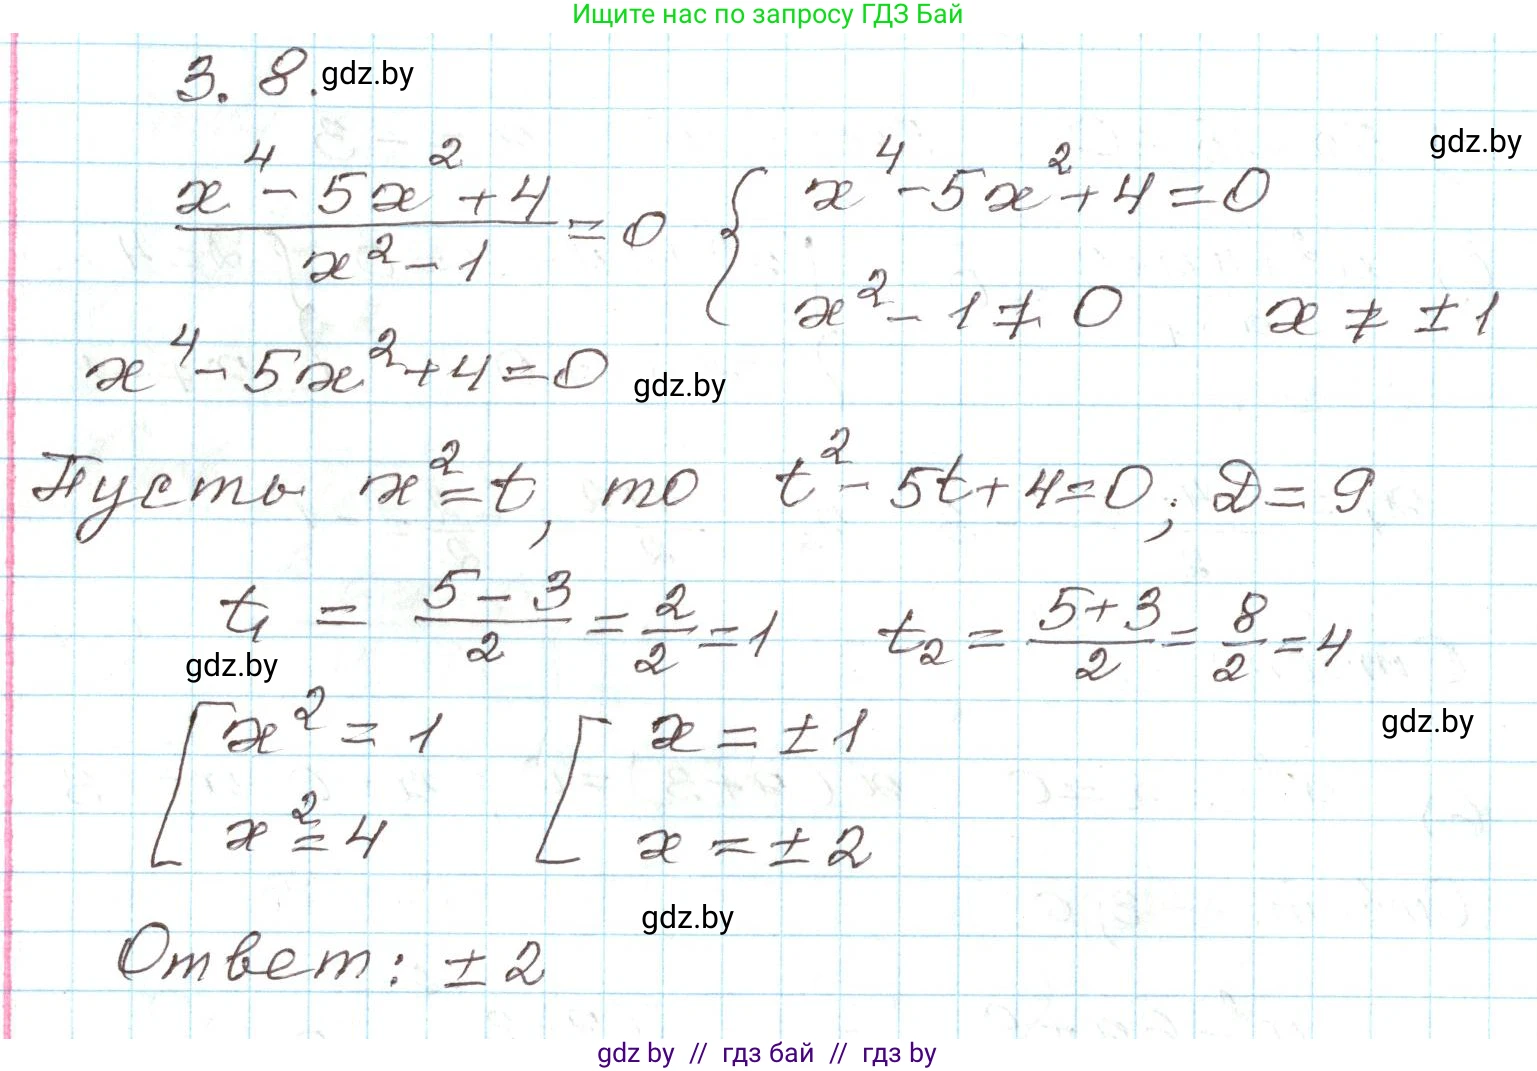 Ищите нас по запросу ГДЗ Бай
3. 8. gdz.by
gdz.by
(x⁴ - 5x² + 4)/(x² - 1) = 0 { x⁴ - 5x² + 4 = 0
x² - 1 ≠ 0 x ≠ ± 1
x⁴ - 5x² + 4 = 0 gdz.by
Пусть x² = t, то t² - 5t + 4 = 0; D = 9
t₁ = (5 - 3)/2 = 2/2 = 1 t₂ = (5 + 3)/2 = 8/2 = 4
gdz.by
[ x² = 1 [ x = ± 1
gdz.by
x² = 4 x = ± 2
gdz.by
Ответ: ± 2
gdz by // гдз бай // гдз by